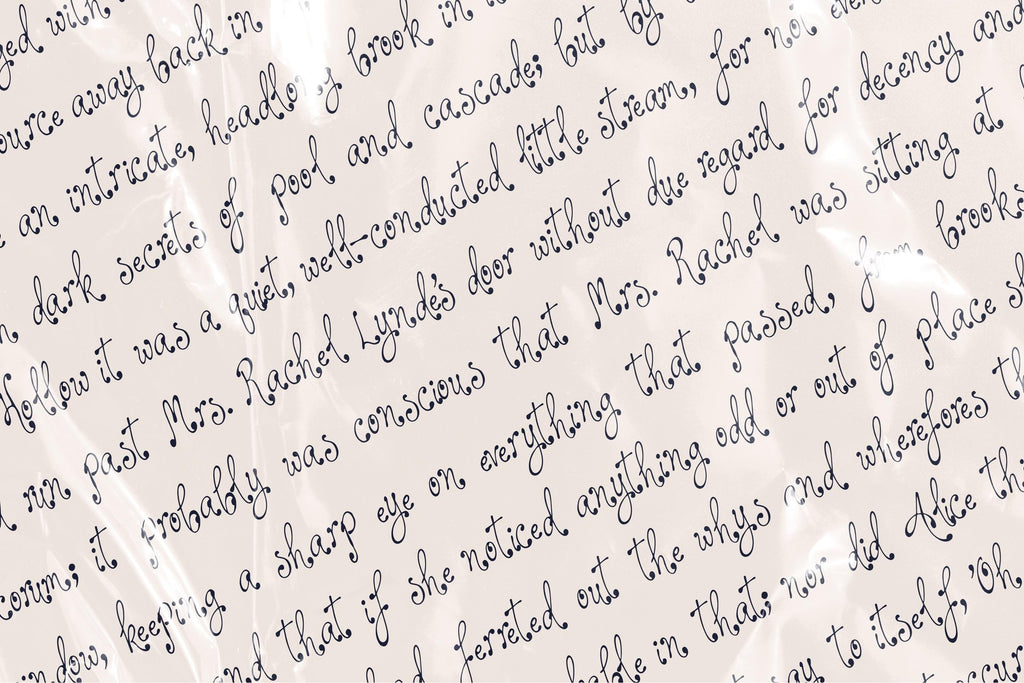 ged with
ource away back in
an intricate, headlong brook in
dark secrets of pool and cascade; but by
Hollow it was a quiet, well-conducted little stream, for not even
run past Mrs. Rachel Lynde's door without due regard for decency and
corum; it probably was conscious that Mrs. Rachel was sitting at
indow, keeping a sharp eye on everything that passed, from brooks
nd that if she noticed anything odd or out of place sh
d ferreted out the whys and wherefores th
able in that; nor did Alice thi
ay to itself, 'Oh
occur